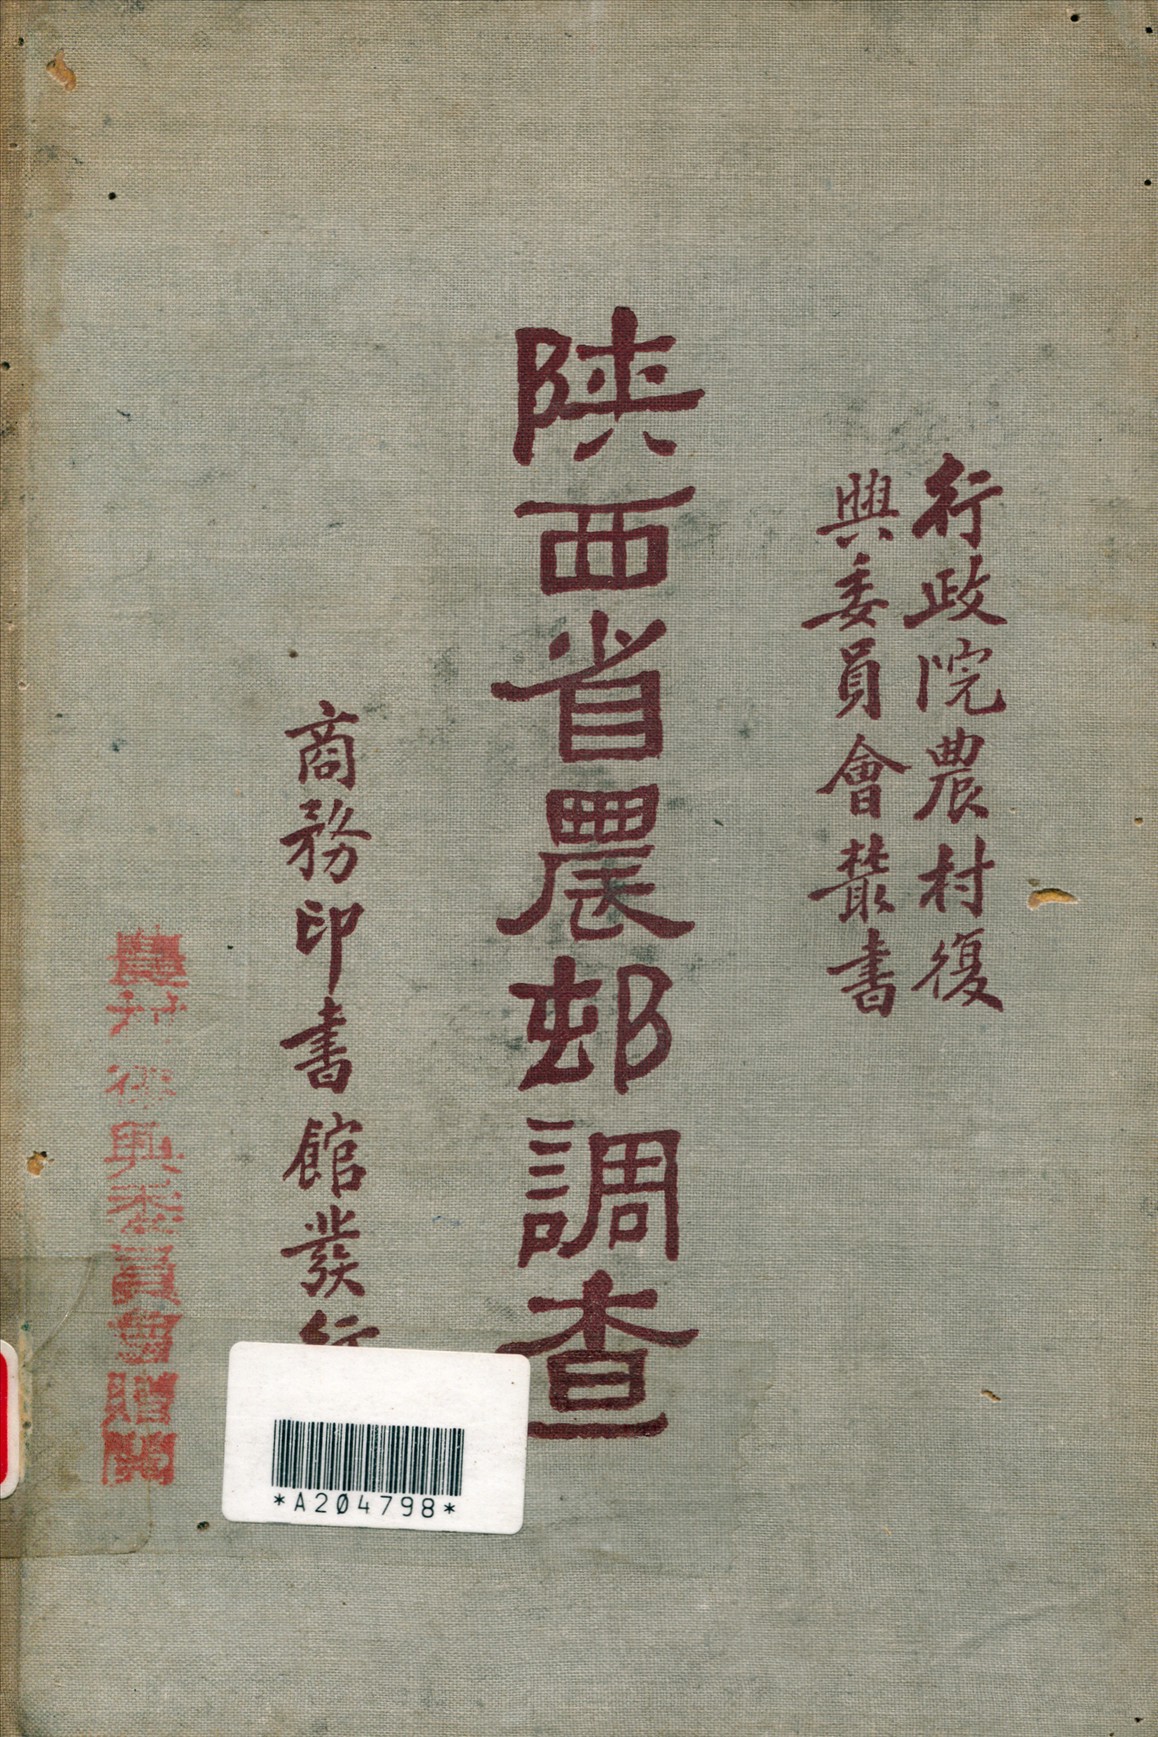 行政院農村復
興委員會叢書
陝西省農邨調查
商務印書館發行
農村復興委員會贈閱
*A204798*